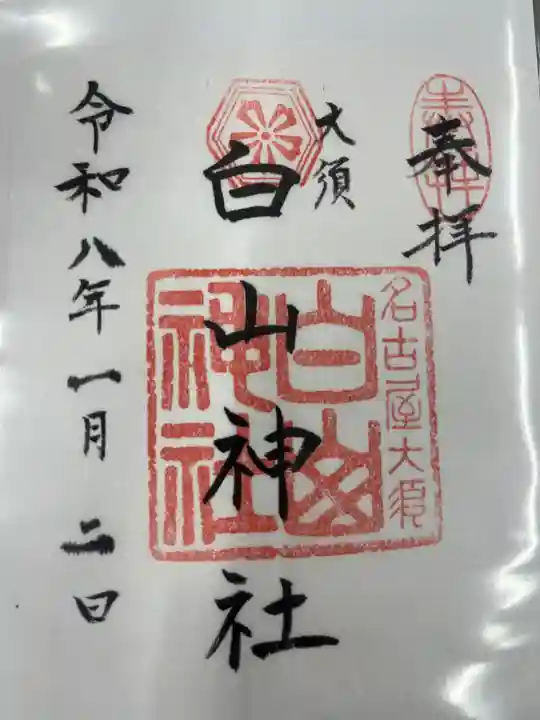 奉拝
大須
白山神社
名古屋大須
白山
神社
令和八年一月二日